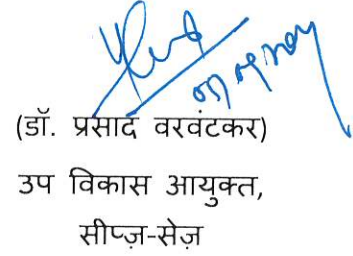 (डॉ. प्रसाद वरवंटकर)
उप विकास आयुक्त,
सीप्ज़-सेज़